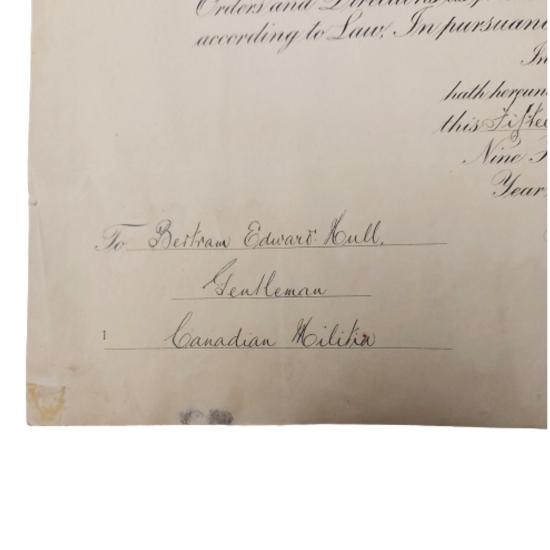 Orders and Directions
according to Law. In pursuan
In
hath hereun
this Fiftee
Nine
Year
To Bertram Edward Hull.
Gentleman
Canadian Militia